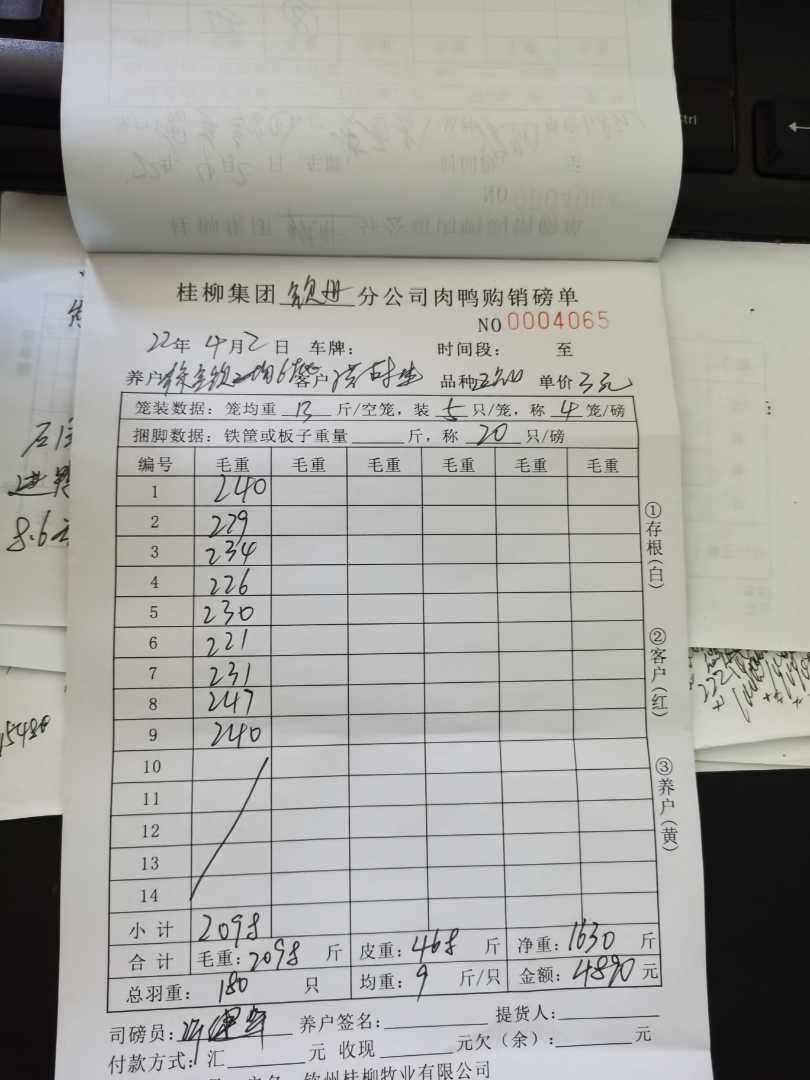 桂柳集团 钦州 分公司肉鸭购销磅单
NO 0004065
22年 4月2日 车牌： 时间段： 至
养户 客户 品种 单价 3元
笼装数据：笼均重 13 斤/空笼，装 5 只/笼，称 4 笼/磅
捆脚数据：铁筐或板子重量 斤，称 20 只/磅
编号 毛重 毛重 毛重 毛重 毛重 毛重
1 240
2 229
3 234
4 226
5 230
6 221
7 231
8 247
9 240
10
11
12
13
14
小计 2098
合计 毛重：2098 斤 皮重：468 斤 净重：1630 斤
总羽重： 180 只 均重：9 斤/只 金额：4890 元
司磅员： 养户签名： 提货人：
付款方式：汇 元 收现 元欠（余）： 元
钦州桂柳牧业有限公司
①存根（白）
②客户（红）
③养户（黄）
8.6元
15480